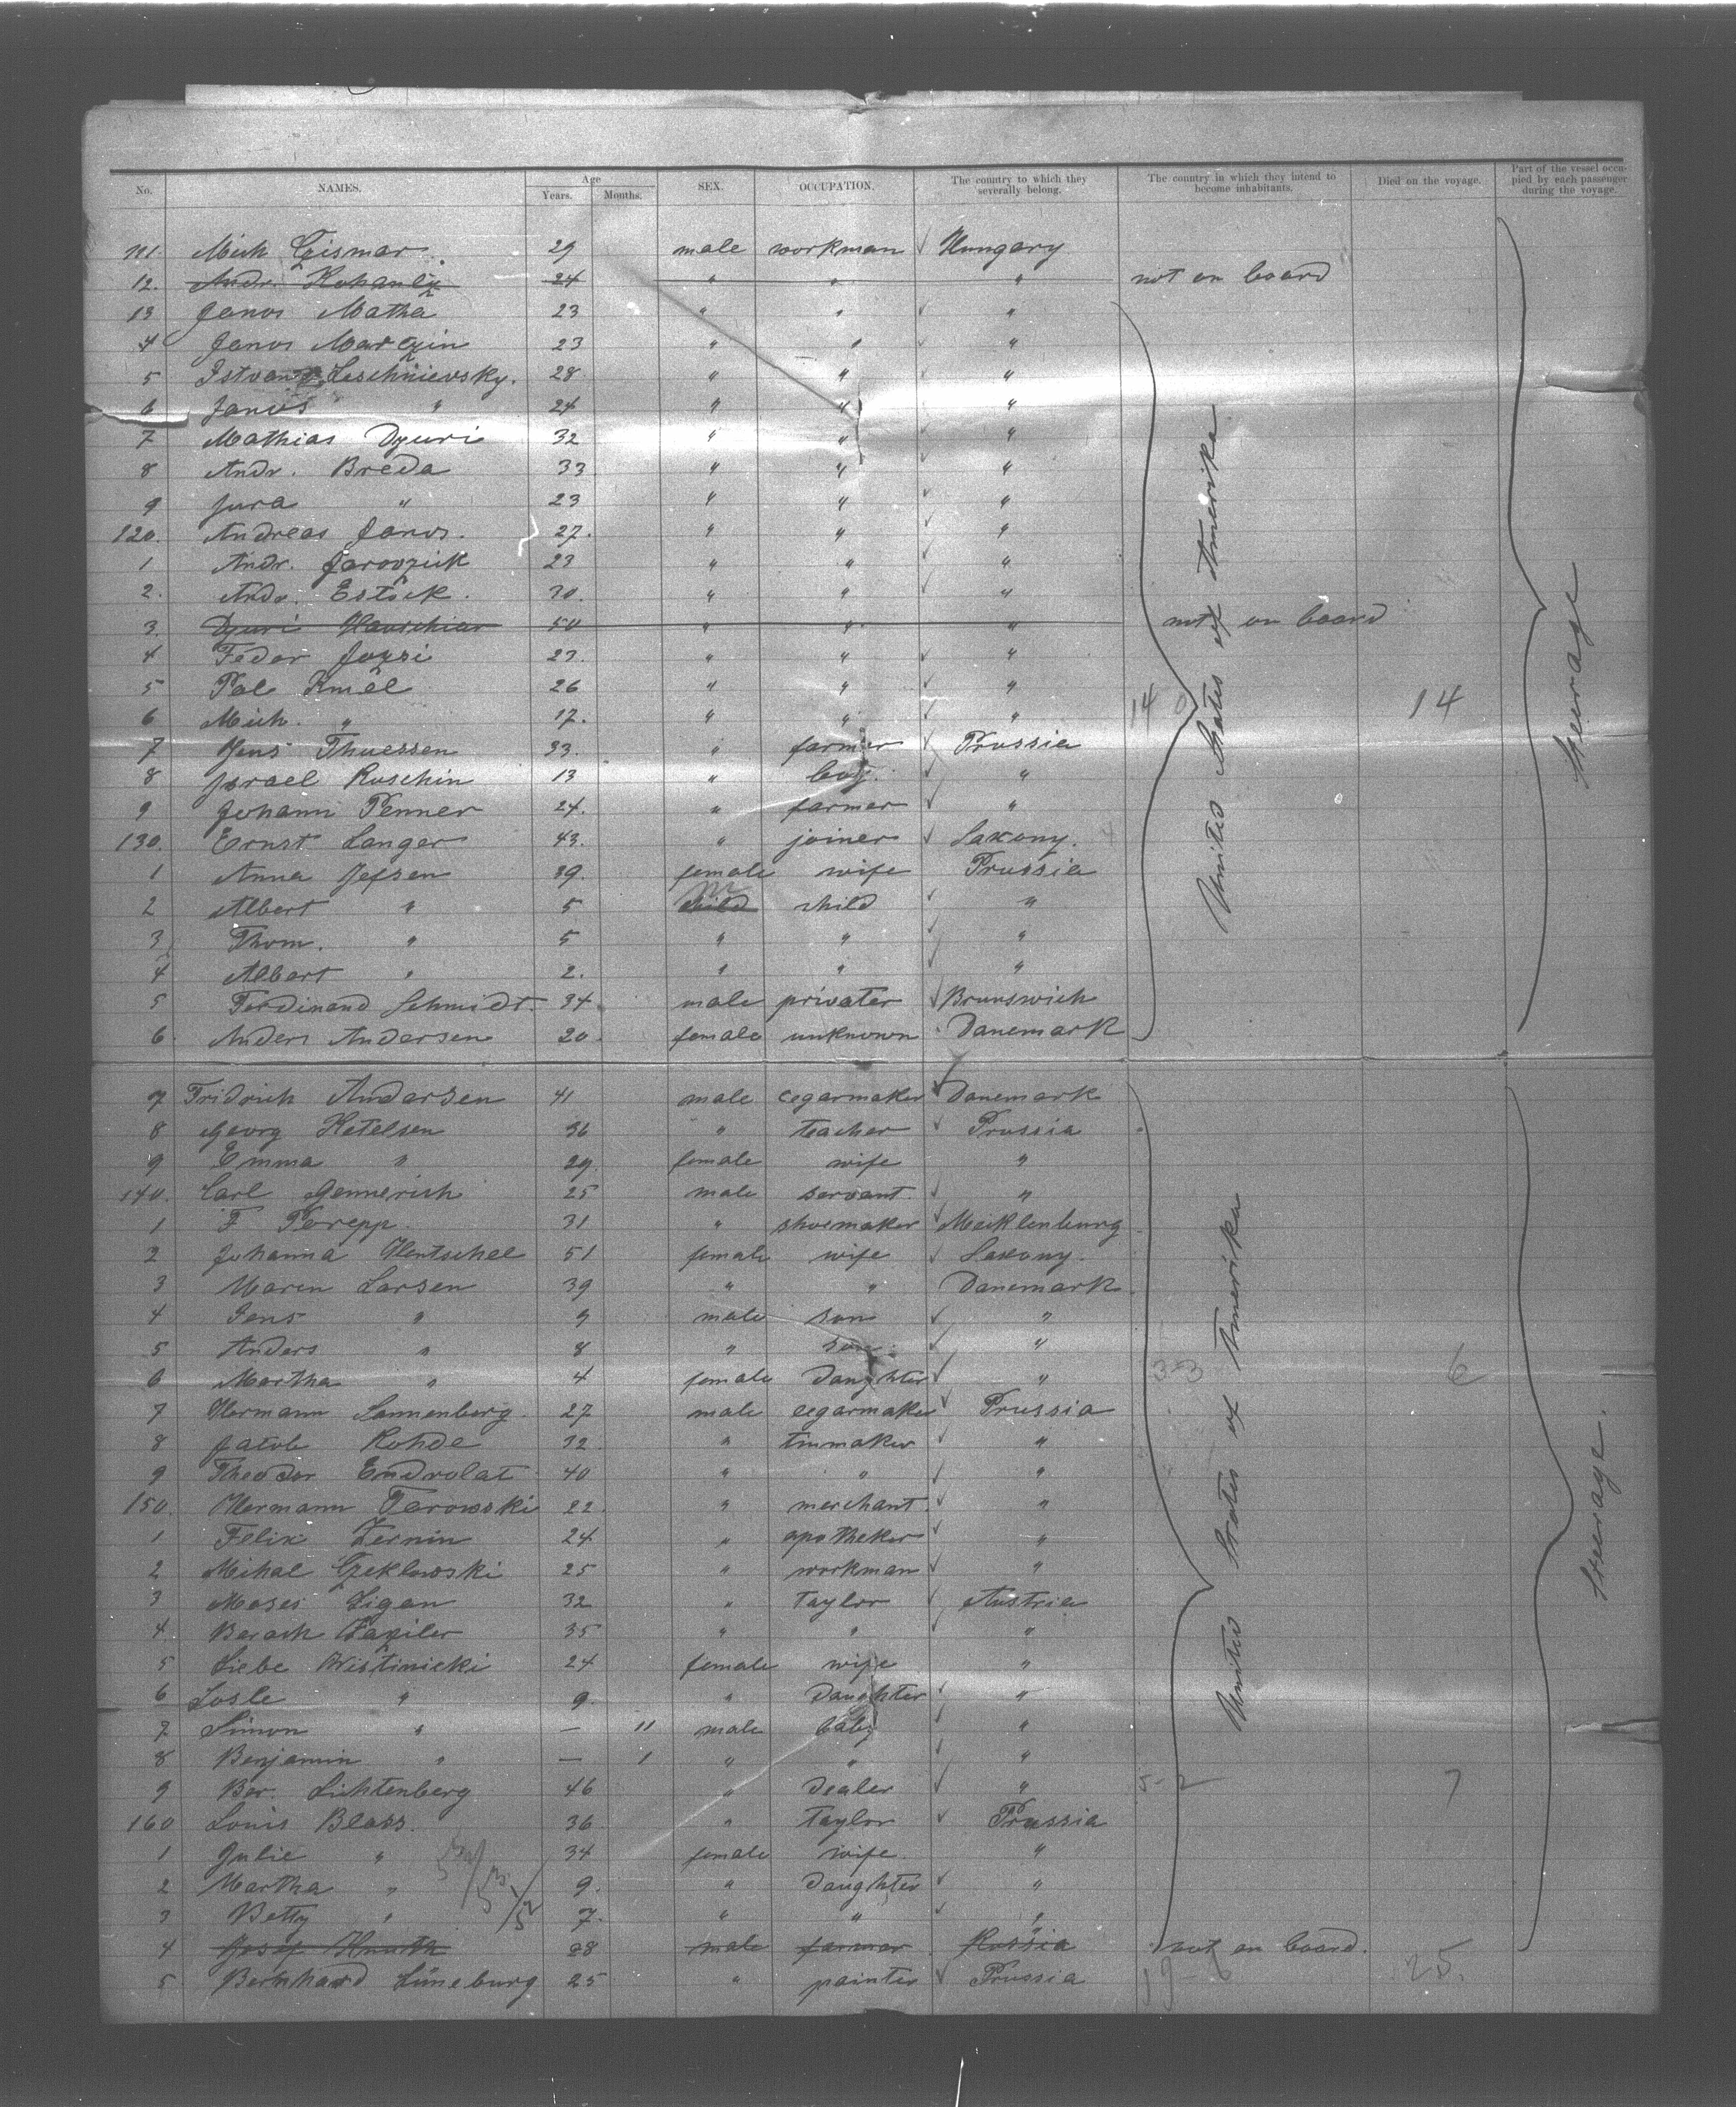 No. NAMES. Age Years. Months. SEX. OCCUPATION. The country to which they severally belong. The country in which they intend to become inhabitants. Died on the voyage. Part of the vessel occupied by each passenger during the voyage.
111. Mich Czismar. 29 male workman Hungary
12. Andr. 24 " " " not on board
13 Janos Matha 23 " " "
4 Janos Marczin 23 " " "
5 Istvan Leschnievsky. 28 " " "
6 Janos " 24 " " "
7 Mathias Dyuri 32 " " "
8 Andr. Breda 33 " " "
9 Jura " 23 " " "
120. Andreas Janos. 27. " " "
1 Andr. 23 " " "
2. Andr. Estöck. 30. " " "
3. Dyuri 50 " " " not on board
4 Feder 23. " " "
5 Pal Kmel 26 " " "
6 Mich. " 17. " " " 14 0 14
7 Jens Thuessen 33. " farmer Prussia
8 Israel Ruschin 13 " boy "
9 Johann Penner 24. " farmer "
130. Ernst Langer 43. " joiner Saxony.
1 Anna Jessen 39. female wife Prussia
2 Albert " 5 child child "
3 Thom. " 5 " " "
4 Albert " 2. " " "
5 Ferdinand Schmidt. 34 male privater Brunswich
6. Anders Andersen 20. female unknown Danemark
United States of Amerika
steerage
7 Fridrich Andersen 41 male cegarmaker Danemark
8 Georg Ketelsen 36 " teacher Prussia
9 Emma " 29. female wife "
140. Carl Gennerich 25 male servant. "
1 F Parepp. 31 " shoemaker Mecklenburg
2 Johanna Hentschel 51 female wife Saxony.
3 Maren Larsen 39 " " Danemark
4 Jens " 9 male son "
5 Anders " 8 " son "
6 Martha " 4 female Daughter " 3-3 6
7 Hermann Sannenberg. 27 male cegarmaker Prussia
8 Jacob Rohde 32. " tinmaker "
9 Theodor Endrolat 40 " " "
150. Hermann Tarowski 22. " merchant. "
1 Felix Zernin 24 " apotheker "
2 Mihal Czeklowski 25 " workman "
3 Moses Zigan 32 " Taylor Austria
4. 35 " " "
5 Liebe Wistinicki 24 female wife "
6 Losle " 9. " Daughter "
7 Simon " — 11 male baby "
8 Benjamin " — 1 " " "
9 Ber. Lichtenberg 46 " Dealer " 5-2 7
160 Louis Blass. 36 " Taylor Prussia
1 Julie " 34 female wife "
2 Martha " 9. " Daughter "
3 Betty " 7. " " "
4 Josef Knuth 28 male farmer Russia not on board.
5. Bernhard Lüneburg 25 " painter Prussia 19 6 25.
United States of Amerika
steerage.